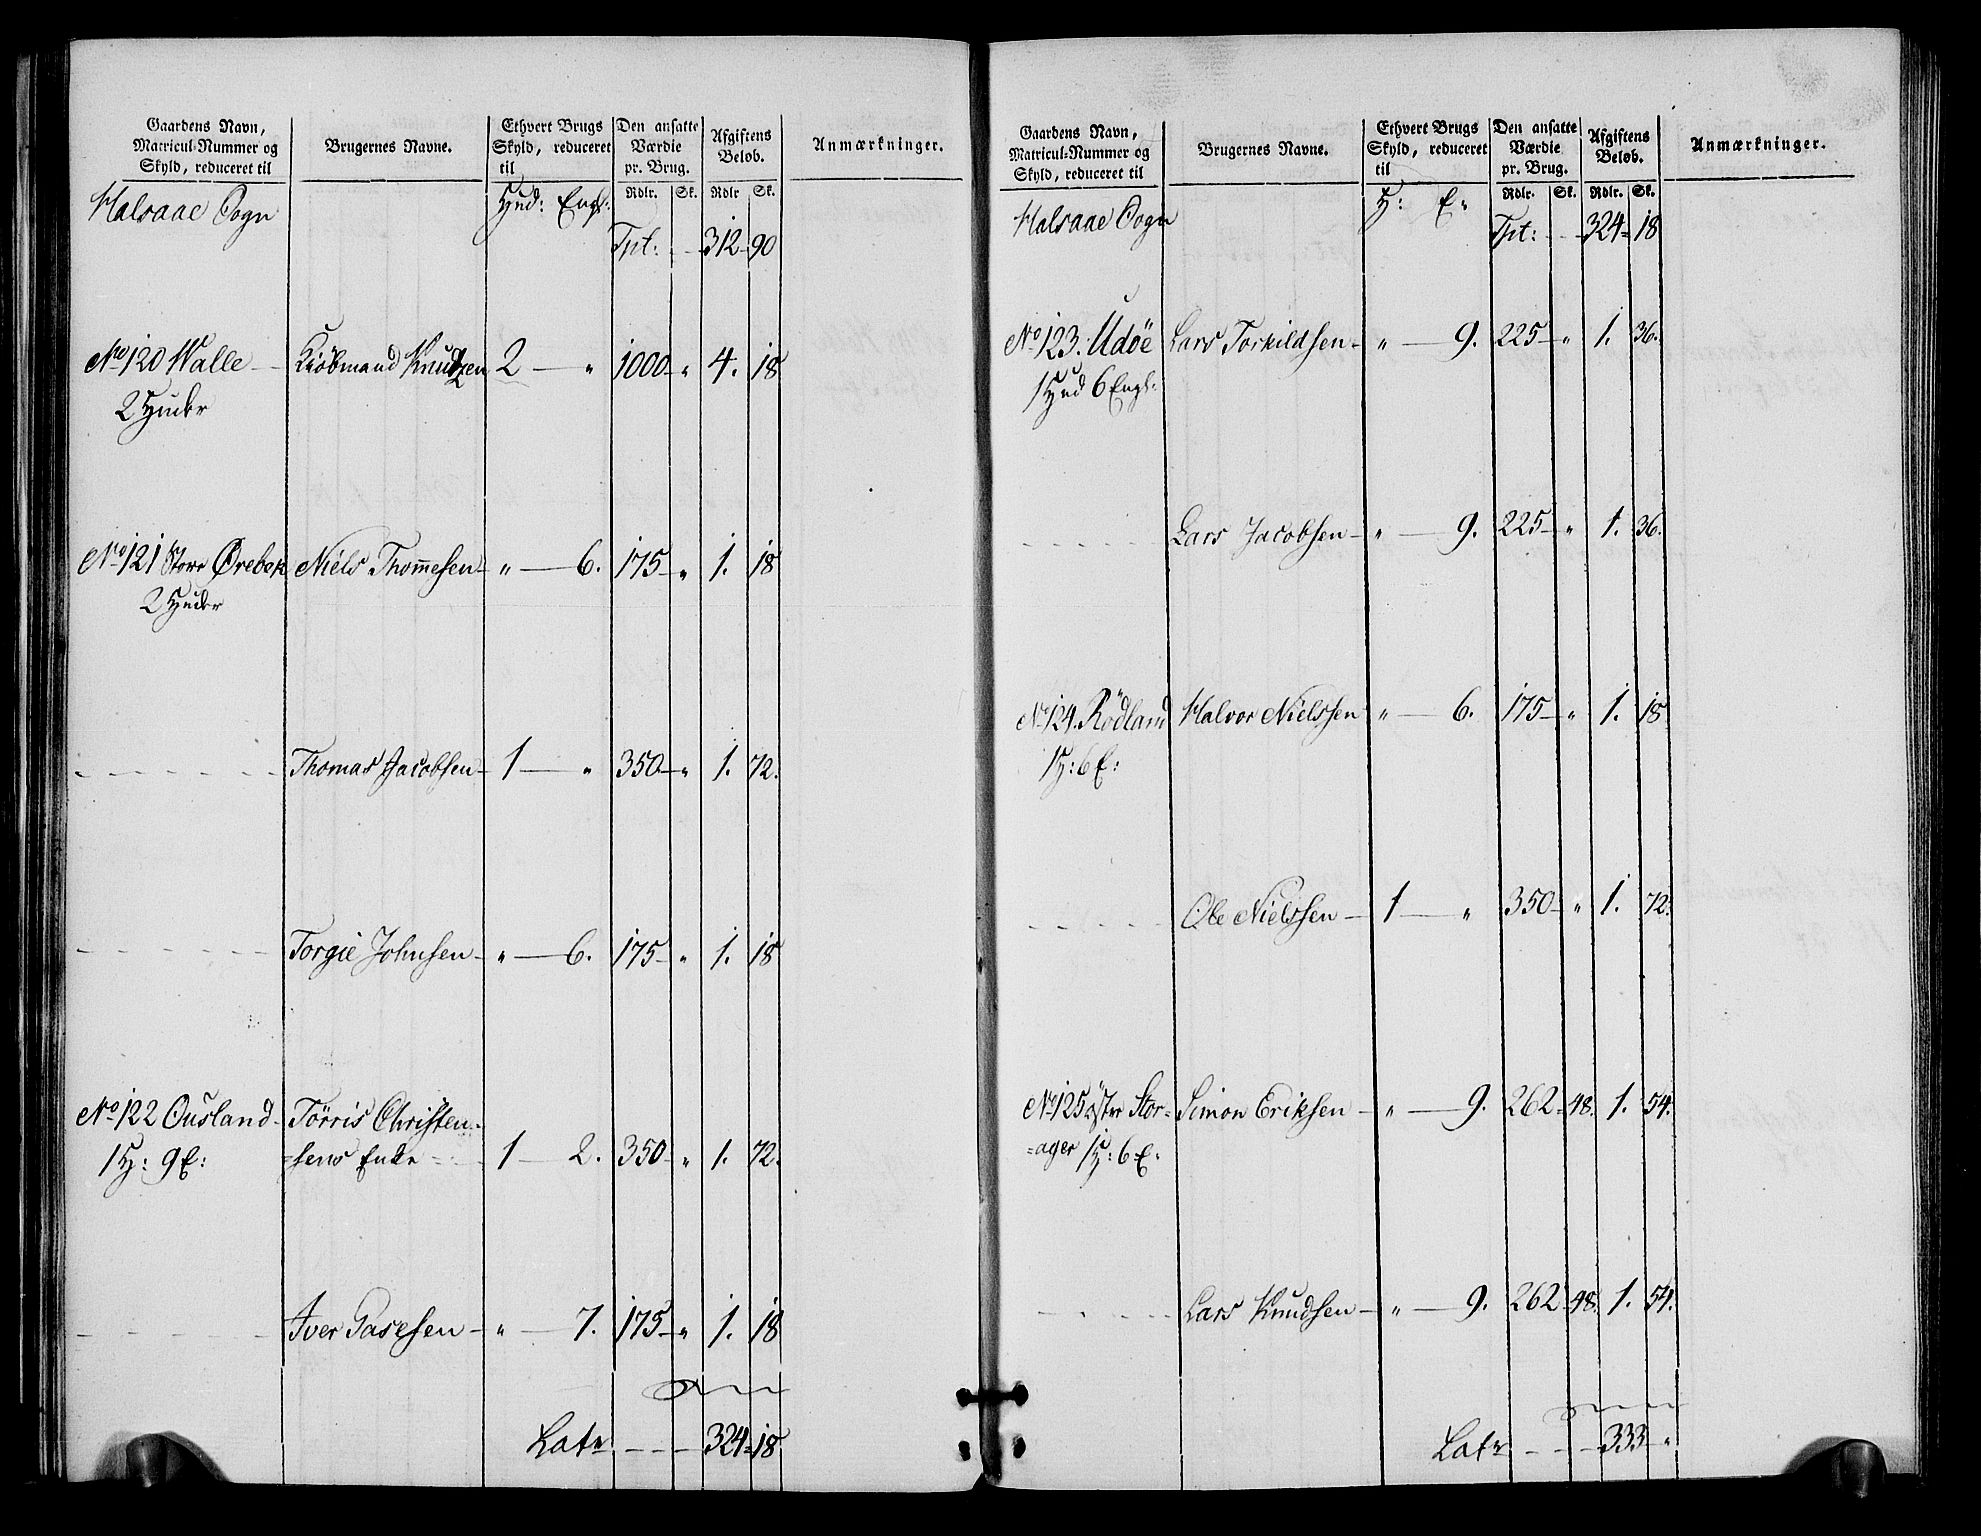 Gaardens Navn, Matricul-Nummer og Skyld, reduceret til | Brugernes Navne. | Ethvert Brugs Skyld, reduceret til | Den ansatte Værdie pr. Brug. | Afgiftens Beløb. | Anmærkninger.
Rdlr. Sk. Rdlr Sk.
Halsaae Sogn Hud: Engl:
Tpt: - - 312 - 90
No 120 Walle - Kiöbmand Knudzen 2 — " 1000 - " 4. 18
2 Huder
No 121 Store Ørebek Niels Thommesen - " — 6. 175 - " 1. 18
2 Huder
- - - - - Thomas Jacobsen - 1 — " 350 - " 1. 72.
- - - - - Torgie Johnsen - " — 6. 175 - " 1. 18
No 122 Ousland - Törris Christen=
1 H: 9 E: =sens Enke - - 1 — 2. 350 - " 1. 72.
- - - - - Iver Gasesen - " — 7. 175 - " 1. 18
Latr - - - 324 = 18
Gaardens Navn, Matricul-Nummer og Skyld, reduceret til | Brugernes Navne. | Ethvert Brugs Skyld, reduceret til | Den ansatte Værdie pr. Brug. | Afgiftens Beløb. | Anmærkninger.
Rdlr. Sk. Rdlr. Sk.
Halsaae Sogn H: E:
Tpt: - - 324 = 18
No 123. Udöe Lars Torkildsen - " — 9. 225 - " 1. 36.
1 Hud 6 Engl:
- - - - - Lars Jacobsen - " — 9. 225 - " 1. 36.
No 124. Rödland Halvor Nielssen " — 6. 175 - " 1. 18
1 H: 6 E:
- - - - - Ole Nielssen - 1 — " 350 - " 1. 72.
No 125 öster Stor= Simon Eriksen - " — 9. 262 - 48. 1. 54.
=ager 1 H: 6 E:
- - - - - Lars Knudsen - " — 9. 262 - 48. 1. 54.
Latr - - - 333 - "